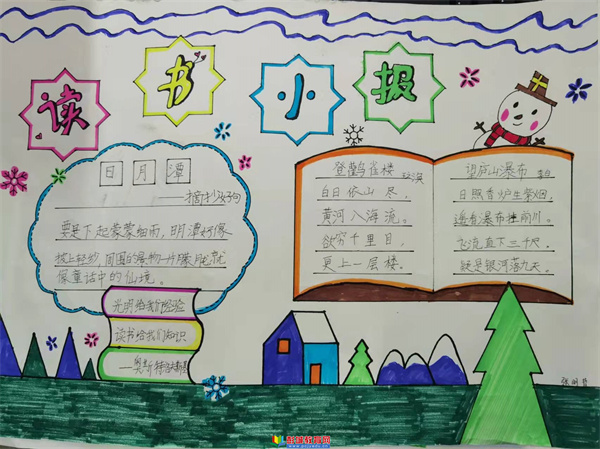 读书小报
日月潭
——摘抄好句
要是下起蒙蒙细雨，明潭好像
披上轻纱，周围的景物一片朦胧，就
像童话中的仙境。
光明给我们经验
读书给我们知识
——奥斯特洛夫斯基
登鹳雀楼
白日依山尽，
黄河入海流。
欲穷千里目，
更上一层楼。
望庐山瀑布 李白
日照香炉生紫烟，
遥看瀑布挂前川。
飞流直下三千尺，
疑是银河落九天。